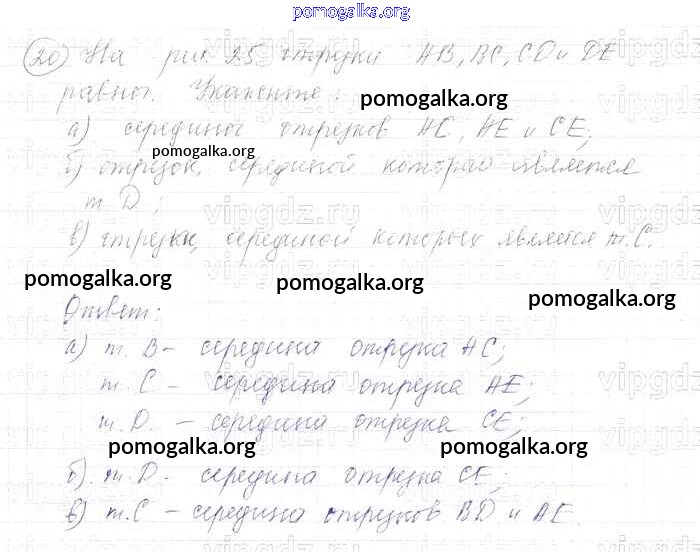 pomogalka.org
20) На рис. 25 отрезки AB, BC, CD и DE
равны. Укажите:
pomogalka.org
а) середины отрезков AC, AE и CE;
pomogalka.org
б) отрезок, серединой которого является
т. D;
в) отрезки, серединой которого является т. C.
pomogalka.org pomogalka.org pomogalka.org
Ответ:
а) т. B - середина отрезка AC;
т. C - середина отрезка AE;
т. D. - середина отрезка CE;
pomogalka.org pomogalka.org
б) т. D - середина отрезка CE;
в) т. C - середина отрезков BD и AE.